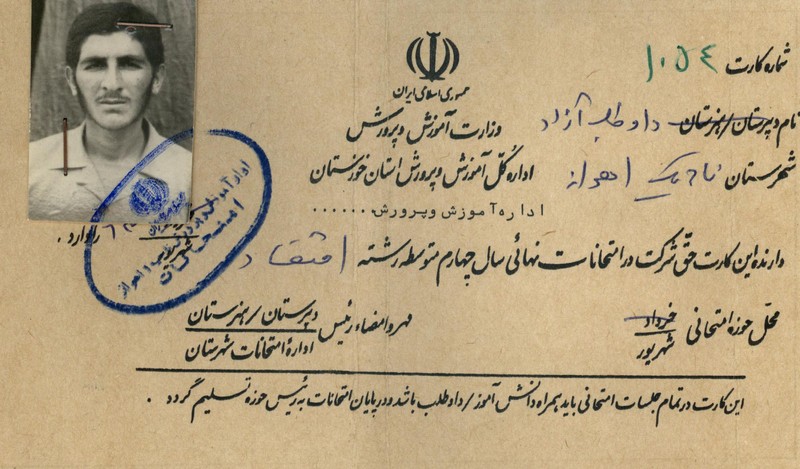 جمهوری اسلامی ایران
وزارت آموزش و پرورش
اداره کل آموزش و پرورش استان خوزستان
اداره آموزش و پرورش .......
شماره کارت ۱۰۵۴
نام دبیرستان/هنرستان داوطلب آزاد
شهرستان ناحیه یک اهواز
دارنده این کارت حق شرکت در امتحانات نهائی سال چهارم متوسطه رشته اقتصاد را دارد .
محل حوزه امتحانی خرداد
شهریور
مهر و امضاء رئیس دبیرستان/هنرستان
اداره امتحانات شهرستان
این کارت در تمام جلسات امتحانی باید همراه دانش آموز/داوطلب باشد و در پایان امتحانات به رئیس حوزه تسلیم گردد .